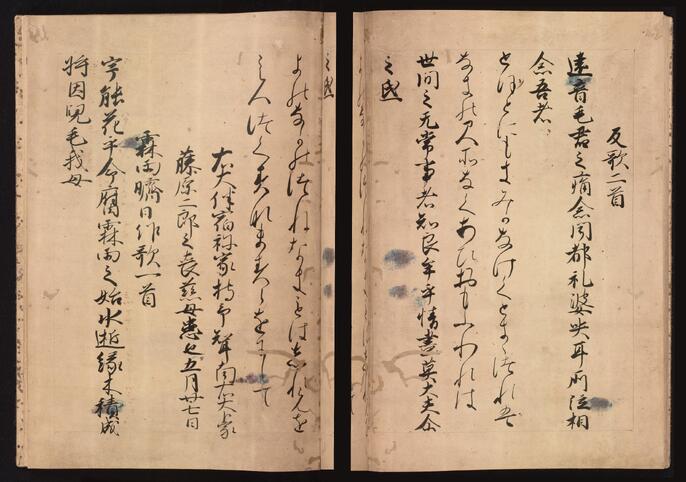 反歌二首
遠音毛君之痛念聞都礼婆哭耳所泣相
念吾者
とほとにもきみかなけくときゝつれは
ねのみそなくあひおもふわれは
世間之无常事者知良牟乎情盡莫大夫尓
之弖
之弖
よのなかのつねなきことはしるらんを
こゝろつくすなますらをにして
右大伴宿祢家持弔聟南右大臣家
藤原二郎之喪慈母患也五月廿七日
霖雨晴日作歌一首
宇能花乎令腐霖雨之始水逝縁木積成
将因兒毛我母